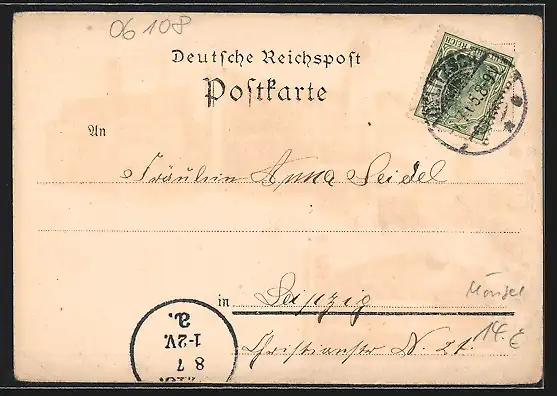 06108
Deutsche Reichspost
Postkarte
An
Fräulein Anna Seidel
in Leipzig
Christianstr N. 21
14.-€
8 7
1-2V.
a.
REICH